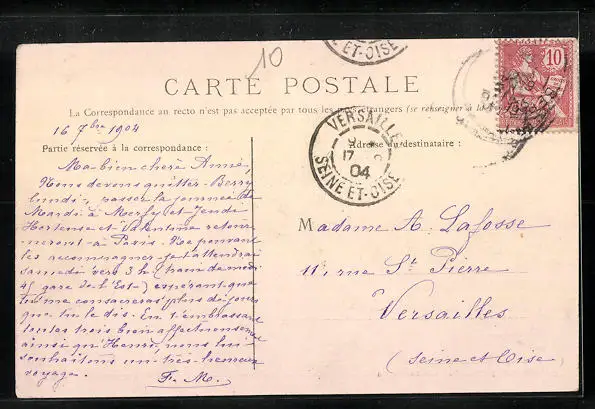 10
ET-OISE
10
CARTE POSTALE
La Correspondance au recto n'est pas acceptée par tous les pays étrangers (se renseigner à la
16 7bre 1904
Partie réservée à la correspondance :
VERSAILLES
17
04
SEINE-ET-OISE
Adresse du destinataire :
Ma bien chère Amie,
Nous devons quitter Berry
lundi, passer la journée de
Mardi à Merfy et Jeudi
Hortense et Valentine retour-
neront à Paris. Ne pouvant
les accompagner je t'attendrai
samedi vers 3 h (train de midi
45 gare de l'Est) espérant que
tu me consacreras plus de jours
que tu le dis. En t'embrassant
toutes trois bien affectueusement
ainsi qu'Henri, nous lui
souhaitons un très heureux
voyage.
F. M.
Madame A. Lafosse
11, rue St Pierre
Versailles
(Seine et Oise)